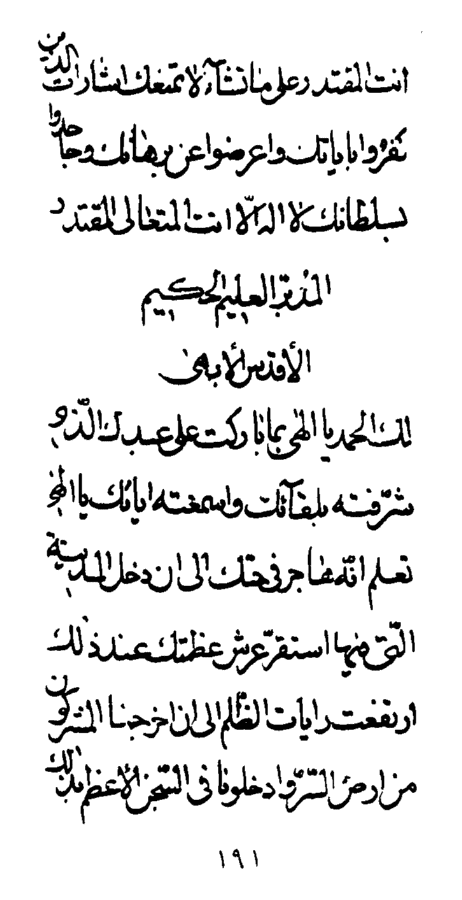 انت المقتدر علی ما تشآء لا تمنعک اشارات الذین
کفروا بایاتک و اعرضوا عن برهانک و جاحدوا
بسلطانک لا اله الّا انت المتعالی المقتدر
المدبّر العلیم الحکیم
الأقدس الأبهی
لک الحمد یا الهی بما بارکت علی عبدک الّذی
شرّفته بلقآئک و اسمعته ایاتک یا الهی
تعلم انّه هاجر فی حبّک الی ان دخل المدینة
الّتی فیها استقرّ عرش عظمتک عند ذلک
ارتفعت رایات الظّلم الی ان اخرجنا المشرکون
من ارض السّرّ و ادخلونا فی السّجن الأعظم بذلک
۱۹۱